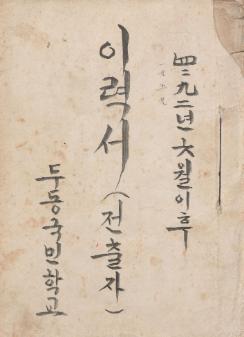 四二九二년 六월이후
이력서(전출자)
두동국민학교